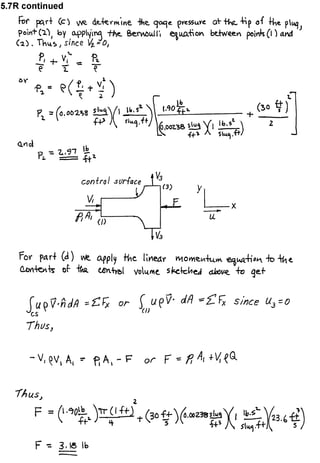 5.7R continued
For part (c) we determine the gage pressure at the tip of the plug,
point (2), by applying the Bernoulli equation between points (1) and
(2). Thus, since V₂=0,
P₁/ρ + V₁²/2 = P₂/ρ
or
P₂ = ρ(P₁/ρ + V₁²/2)
P₂ = (0.00238 slug/ft³)(1 lb.s²/slug.ft)[1.90 lb/ft² / (0.00238 slug/ft³)(1 lb.s²/slug.ft) + (30 ft/s)²/2]
and
P₂ = 2.97 lb/ft²
control surface V₃
(3)
V₁ F
P₁A₁ (1)
V₃
y
x
u
For part (d) we apply the linear momentum equation to the
contents of the control volume sketched above to get
∫cs uρV̄·n̂dA = ΣFx or ∫(1) uρV̄· dA = ΣFx since u₃=0
Thus,
-V₁ρV₁A₁ = P₁A₁ - F or F = P₁A₁ + V₁ρQ
Thus,
F = (1.90 lb/ft²) π(1 ft)²/4 + (30 ft/s)(0.00238 slug/ft³)(1 lb.s²/slug.ft)(23.6 ft³/s)
F = 3.18 lb